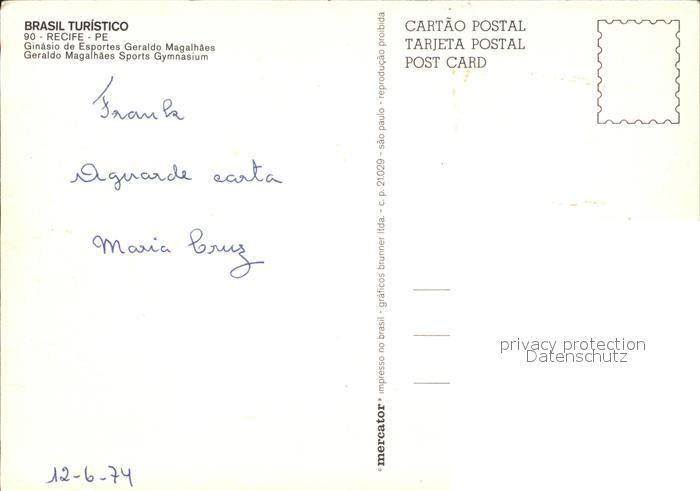 BRASIL TURÍSTICO
90 - RECIFE - PE
Ginásio de Esportes Geraldo Magalhães
Geraldo Magalhães Sports Gymnasium
Frank
Aguarde carta
Maria Cruz
12-6-74
mercator® impresso no brasil - gráficos brunner ltda. - c. p. 21.029 - são paulo - reprodução proibida
CARTÃO POSTAL
TARJETA POSTAL
POST CARD
privacy protection
Datenschutz